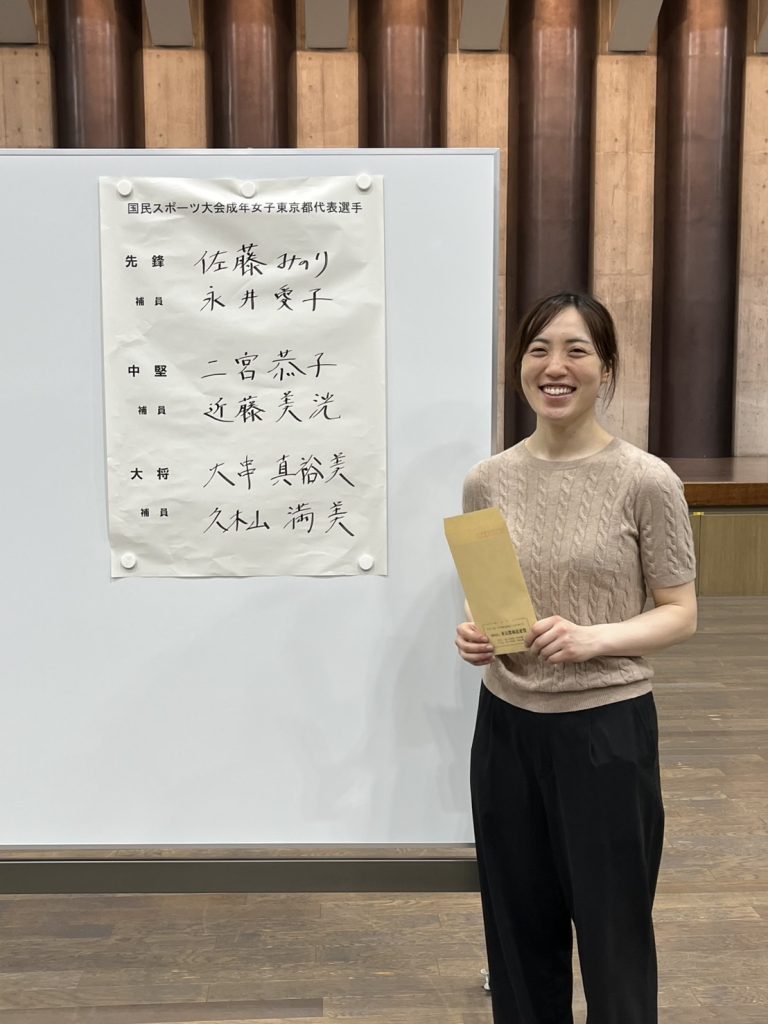 国民スポーツ大会成年女子東京都代表選手
先鋒 佐藤みのり
補員 永井愛子
中堅 二宮恭子
補員 近藤美洸
大将 大串真裕美
補員 久木山満美